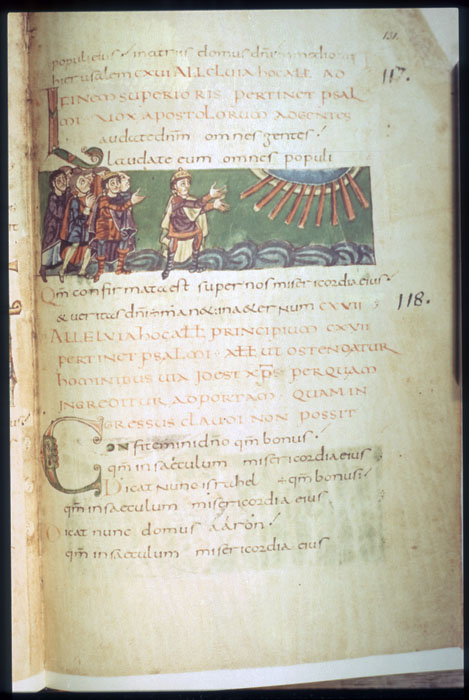 131.
populi eius · in atriis domus dñi in medio tui
hierusalem CXVI ALLELUIA hOC ALL AD
FINEM SUPERIORIS PERTINET PSAL
MI XIOX APOSTOLORUM AD GENTES
117.
Laudate dnm omnes gentes ·
Laudate eum omnes populi
Qm confirmata est super nos misericordia eius ·
& ueritas dni man& in a&ernum CXVII
118.
ALLELVIA hOC ALL PRINCIPIUM CXVII
PERTINET PSALMI · ALL UT OSTENDATUR
hOMINIBUS UIA ID EST XPS PER QUAM
INGREDITUR AD PORTAM QUAM IN
GRESSUS CLAUDI NON POSSIT
Confitemini dño qm bonus ·
qm in saeculum misericordia eius
Dicat nunc israhel qm bonus ·
qm in saeculum misericordia eius
Dicat nunc domus aaron ·
qm in saeculum misericordia eius